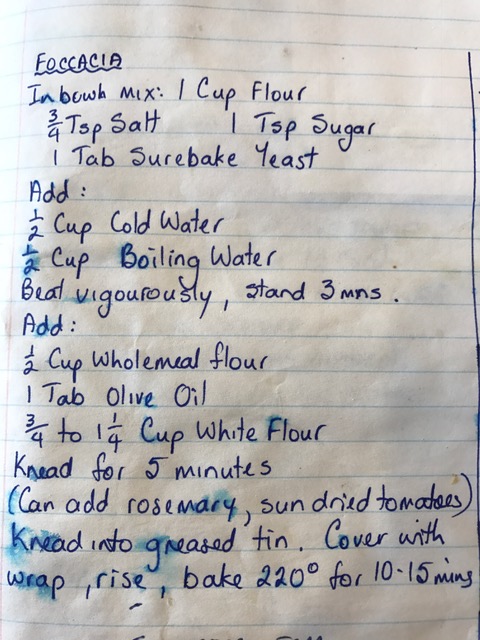 FOCCACIA
In bowh mix: 1 Cup Flour
3/4 Tsp Salt 1 Tsp Sugar
1 Tab Surebake Yeast
Add:
1/2 Cup Cold Water
1/2 Cup Boiling Water
Beat vigourously, stand 3 mns.
Add:
1/2 Cup Wholemeal flour
1 Tab Olive Oil
3/4 to 1 1/4 Cup White Flour
Knead for 5 minutes
(Can add rosemary, sun dried tomatoes)
Knead into greased tin. Cover with
wrap, rise, bake 220° for 10-15 mins